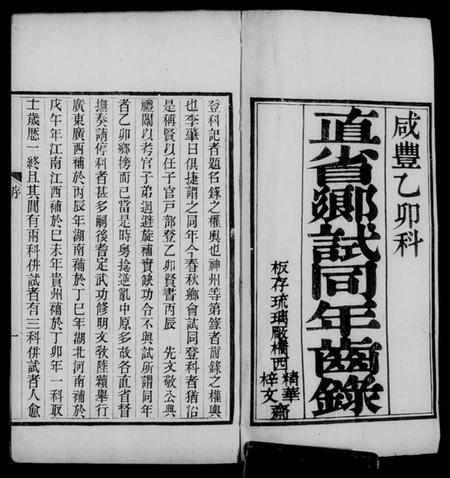 咸豐乙卯科
直省鄉試同年齒錄
板存琉璃厰橋西
精華齋
梓文齋
登科記者題名錄之權輿也神州等弟錄者齒錄之權輿
也李肇曰俱捷謂之同年今春秋鄉會試同登科者猶沿
是稱賢以任子官戸部登乙卯賢書丙辰 先文敬公典
禮闈以考官子弟迴避旋補實缺功令不與試所謂同年
者乙卯鄉榜而已當是時粵捻逆亂中原多故各直省督
撫奏請停科者甚多嗣後耆定武功修明文敎陸續舉行
廣東廣西補於丙辰年湖南補於丁巳年湖北河南補於
戊午年江南江西補於己未年貴州補於丁卯年一科取
士歲歷一終且其閒有兩科併試者有三科併試者人愈
序
一